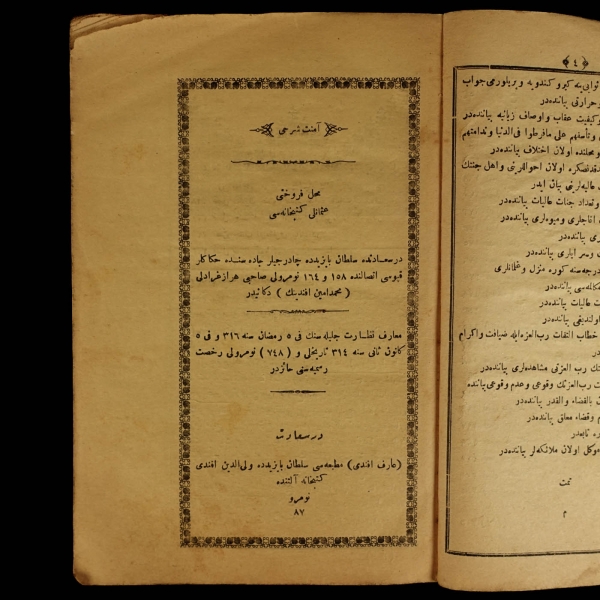 آمنت شرحی
محل فروختی
عثمانلی کتبخانه‌سی
درسعادتده سلطان بایزیدده چادرجیلر جاده سنده حکاکلر
قپوسی اتصالنده ١٥٨ و ١٦٤ نومرولی صاحبی هزارغرادلی
( محمد امین افندینك ) دکانیدر
معارف نظارت جلیله‌سنك فی ٥ رمضان سنه ٣١٦ و فی ٥
کانون ثانی سنه ٣١٤ تاریخلی و ( ٧٤٨ ) نومرولی رخصت
رسمیه‌سنی حائزدر
درسعادت
(عارف افندی) مطبعه‌سی سلطان بایزیدده ولی الدین افندی
کتبخانه آلتنده
نومرو
٨٧
﴿ ٤ ﴾
ثوابی ینه کیرو کندویه ویریلورمی جواب
وحرارتی بیاننده‌در
وکیفیت عقاب واوصاف زبانیه بیاننده‌در
وتأسفهم علی مافرطوا فی الدنیا وندامتهم
ومحلنده اولان اختلاف بیاننده‌در
اولان احوالزینی واهل جنتك
بیان ایدر
وتعداد جنات عالیات بیاننده‌در
اغاجلری ومیوه‌لری بیاننده‌در
بیاننده‌در
ایاری بیاننده‌در
درجه‌سنه کوره منزل وغلمانلری
بیاننده‌در
عالیات بیاننده‌در
اولندیغی بیاننده‌در
خطاب التفات رب العزه ایله ضیافت واکرام
رب العزتی مشاهده‌لری بیاننده‌در
رب العزتك وقوعی وعدم وقوعی بیاننده
بالقضاء والقدر بیاننده‌در
وقضاء معلق بیاننده‌در
موکل اولان ملائکه‌لر بیاننده‌در
تمت
م